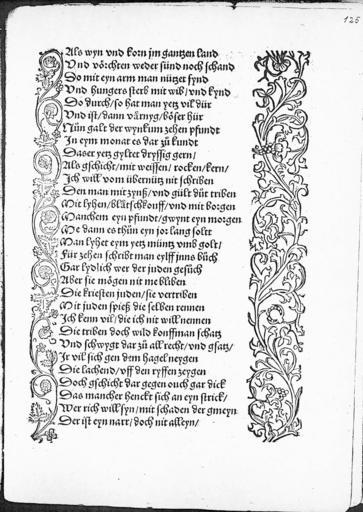 126
Als wyn vnd korn jm gantzen land
Vnd vörchten weder sünd noch schand
Do mit eyn arm man nützet fynd
Vnd hungers sterb mit wib/ vnd kynd
Do durch/ so hat man yetz vil dür
Vnd ist/ dann värnyg/ böser hür
Nün galt der wynkum zehen pfundt
In eym monat es dar zů kundt
Das er yetz gyltet dryssig gern/
Als gschicht/ mit weissen/ rocken/ kern/
Ich will vom übernütz nit schriben
Den man mit zynß/ vnd gült důt triben
Mit lyhen/ blätschkouff/ vnd mit borgen
Manchem eyn pfundt/ gwynt eyn morgen
Me dann es thůn eyn jor lang soltt
Man lyhet eym yetz müntz vmb golt/
Für zehen schribt man eylff jnns bůch
Gar lydlich wer der juden gesůch
Aber sie mögen nit me bliben
Die kristen juden/ sie vertriben
Mit juden spieß die selben rennen
Ich kenn vil/ die ich nit will nennen
Die triben doch wild kouffmanschatz
Vnd schwygt dar zů all recht/ vnd gsatz/
Ir vil sich gen dem hagel neygen
Die lachend/ vff den ryffen zeygen
Doch gschicht dar gegen ouch gar dick
Das mancher henckt sich an eyn strick/
Wer rich will syn/ mit schaden der gmeyn
Der ist eyn narr/ doch nit alleyn/